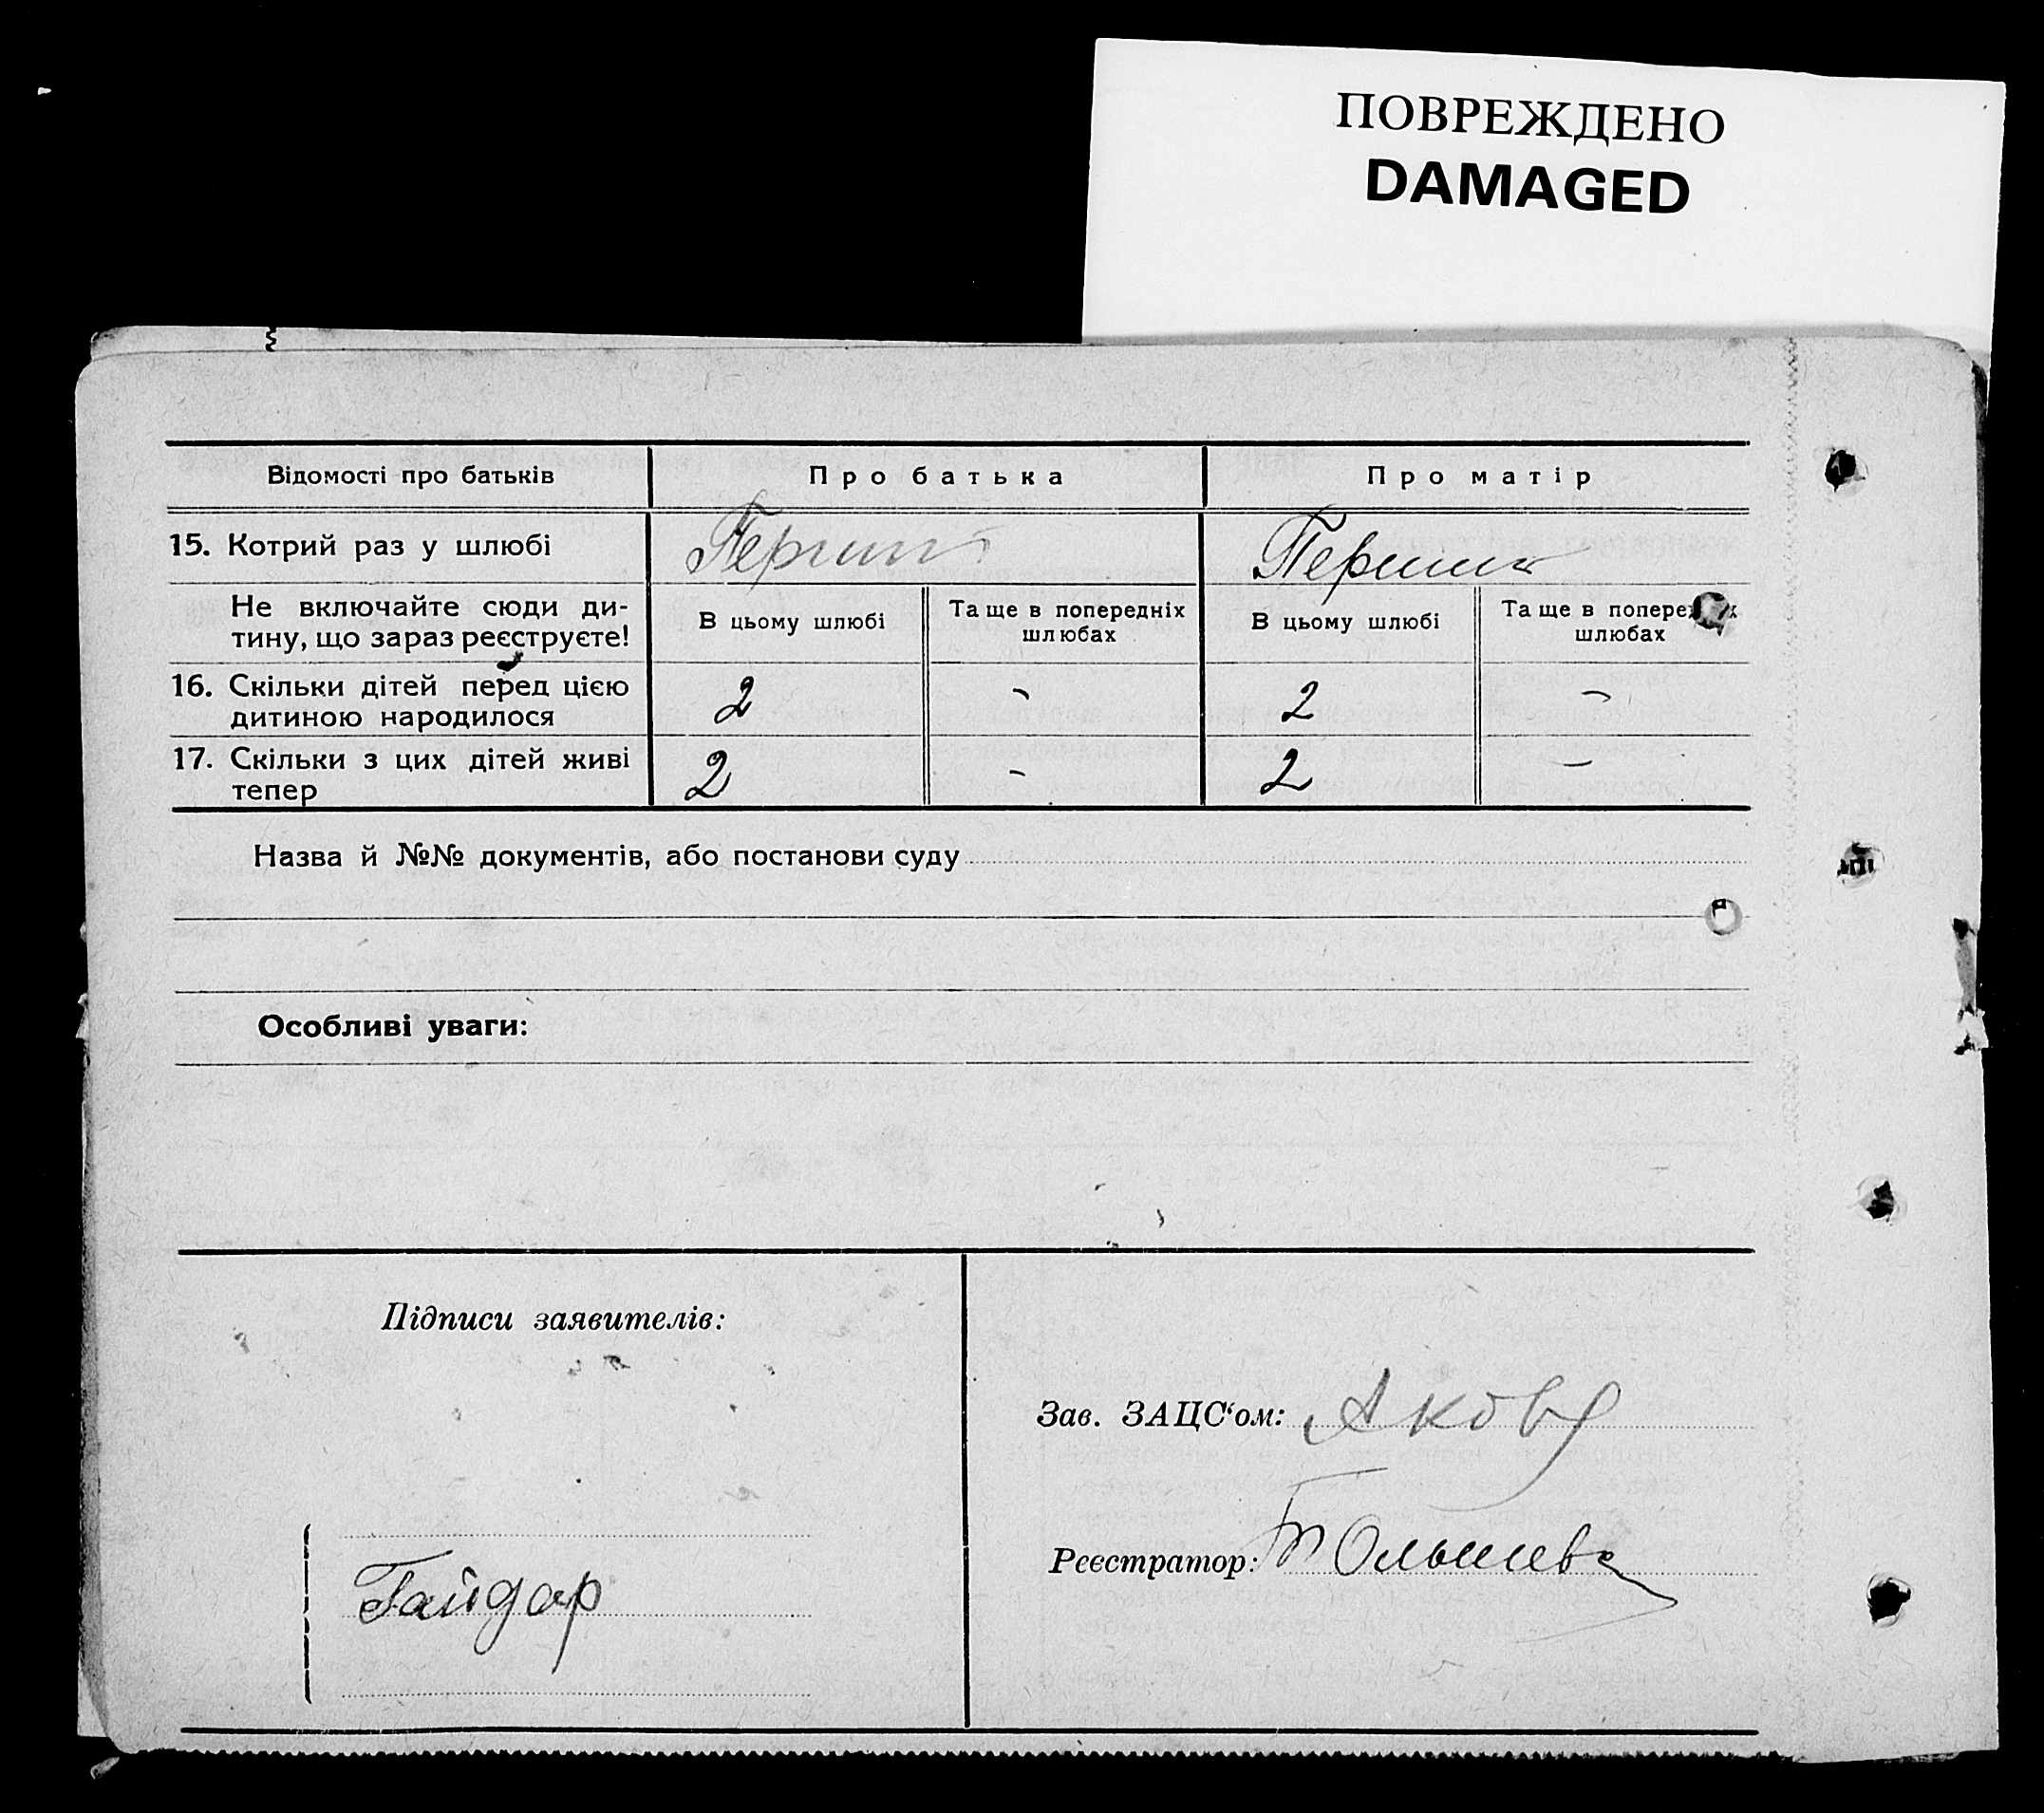 ПОВРЕЖДЕНО
DAMAGED
Відомості про батьків
Про батька
Про матір
15. Котрий раз у шлюбі
Перший
Перший
Не включайте сюди ди-
тину, що зараз реєструєте!
В цьому шлюбі
Та ще в попередніх
шлюбах
В цьому шлюбі
Та ще в
шлюбах
16. Скільки дітей перед цією
дитиною народилося
2
-
2
-
17. Скільки з цих дітей живі
тепер
2
-
2
-
Назва й №№ документів, або постанови суду
Особливі уваги:
Підписи заявителів:
Гайдар
Зав. ЗАЦС‘ом:
Реєстратор: